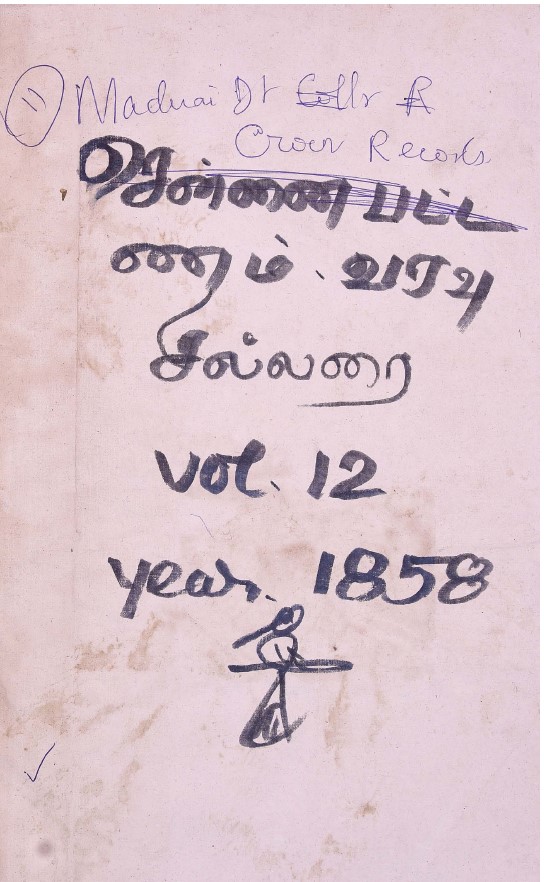 11 Madurai Dt Collr R
Crown Records
சென்னை பட்ட
ணம். வரவு
சில்லறை
vol. 12
year. 1858